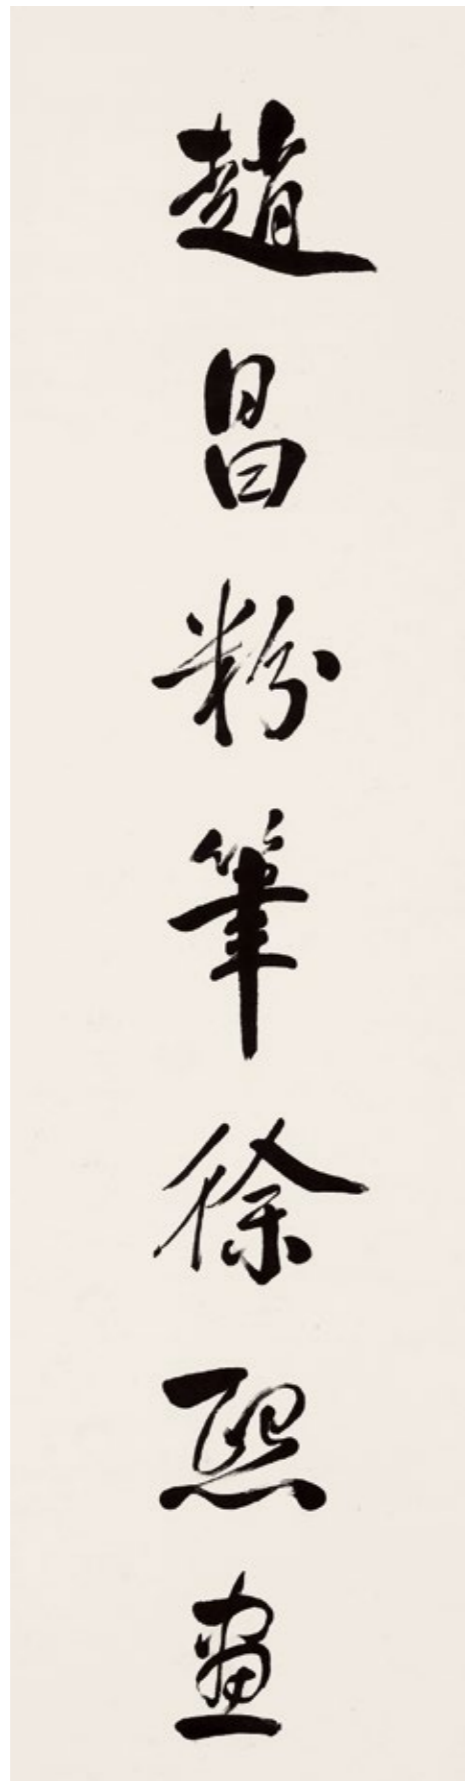 趙昌粉筆徐熙畫